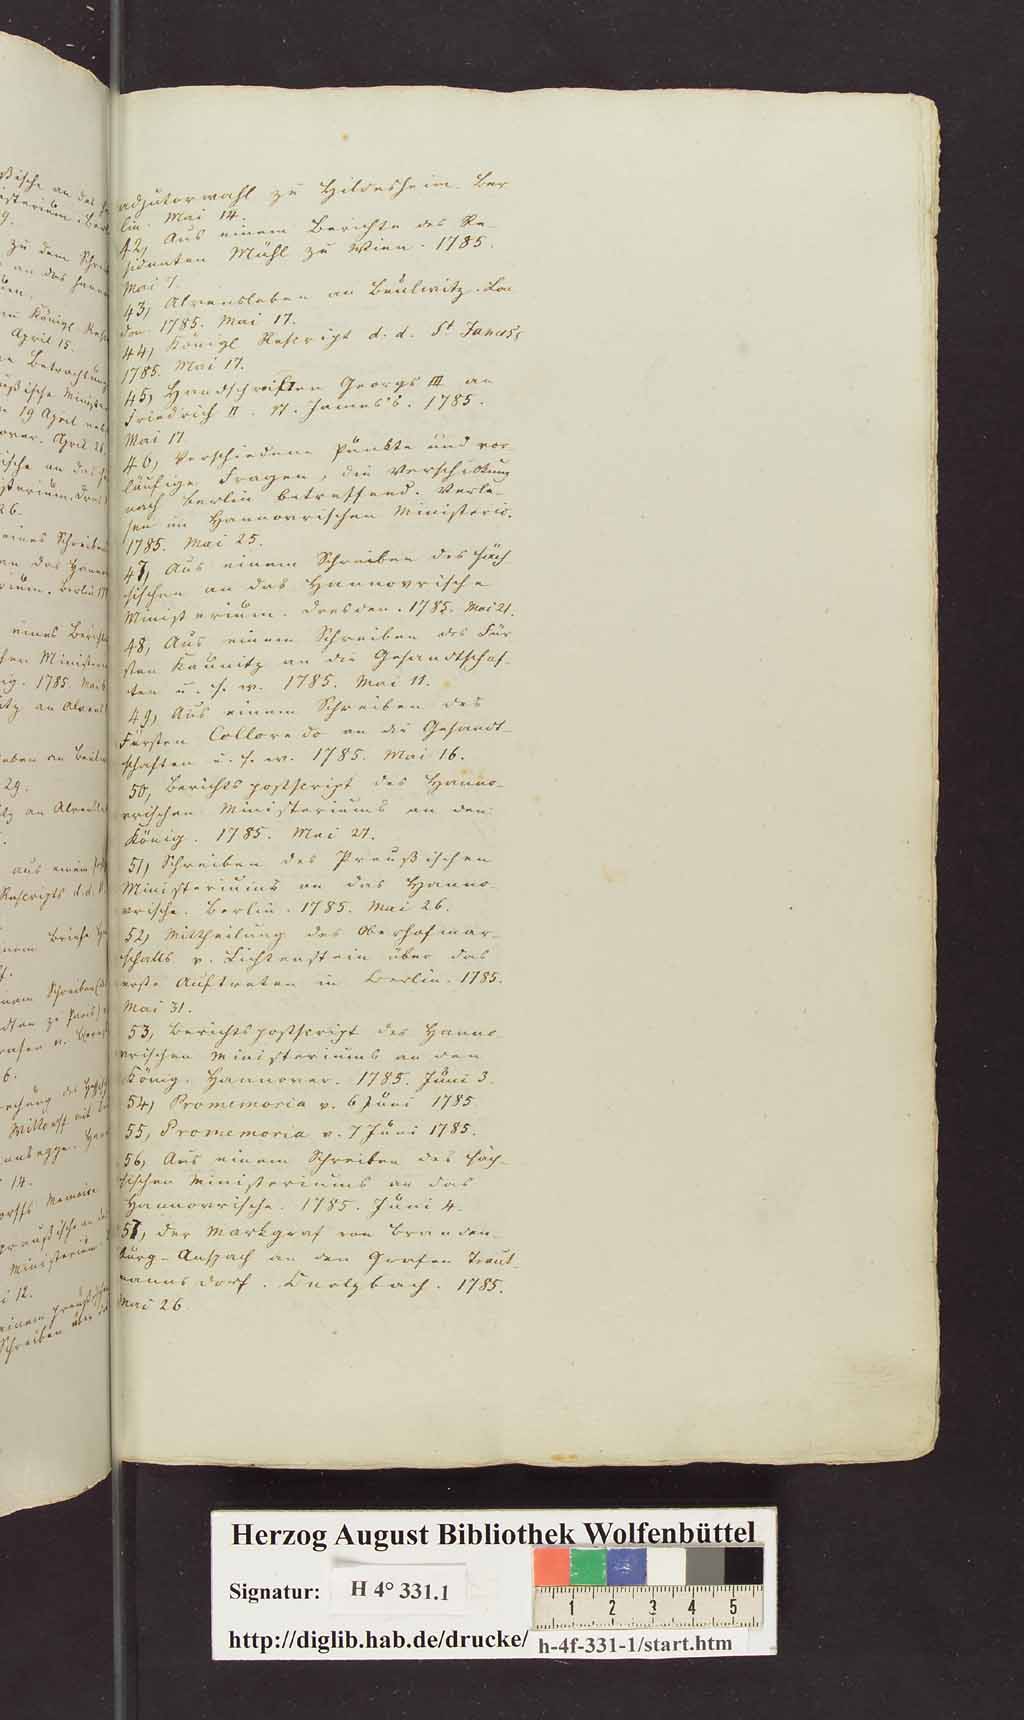 adjutorwahl zu Hildesheim. Ber
lin. Mai 14.
42, Aus einem Berichte des Re-
sidenten Mühl zu Wien. 1785.
Mai 7.
43, Alvensleben an Beulwitz. Lon
don 1785. Mai 17.
44, Königl Rescript d. d. St James's
1785. Mai 17.
45, Handschreiben Georgs III an
Friedrich II. St. James's. 1785.
Mai 17
46, Verschiedene Punkte und vor
läufige Fragen, die Verschickung
nach Berlin betreffend. Verle-
sen im Hannovrischen Ministerio.
1785. Mai 25.
47, Aus einem Schreiben des säch
sischen an das Hannovrische
Ministerium. Dresden. 1785. Mai 21.
48, Aus einem Schreiben des Für
sten Kaunitz an die Gesandtschaf-
ten u. s. w. 1785. Mai 11.
49, Aus einem Schreiben des
Fürsten Colloredo an die Gesandt-
schaften u. s. w. 1785. Mai 16.
50, Berichtspostscript des Hanno-
vrischen Ministeriums an den
König. 1785. Mai 27.
51, Schreiben des Preußischen
Ministeriums an das Hanno-
vrische. Berlin. 1785. Mai 26.
52, Mittheilung des Oberhofmar-
schalls v. Lichtenstein über das
erste Auftreten in Berlin. 1785.
Mai 31.
53, Berichtspostscript des Hanno
vrischen Ministeriums an den
König. Hannover. 1785. Juni 3.
54, Promemoria v. 6 Juni 1785
55, Promemoria v. 7 Juni 1785.
56, Aus einem Schreiben des säch-
sischen Ministeriums an das
Hannovrische. 1785. Juni 4.
57, Der Markgraf von Branden-
burg-Anspach an den Grafen Traut-
mannsdorf. 1785.
Mai 26
Herzog August Bibliothek Wolfenbüttel
Signatur: H 4° 331.1
1 2 3 4 5
http://diglib.hab.de/drucke/ h-4f-331-1/start.htm